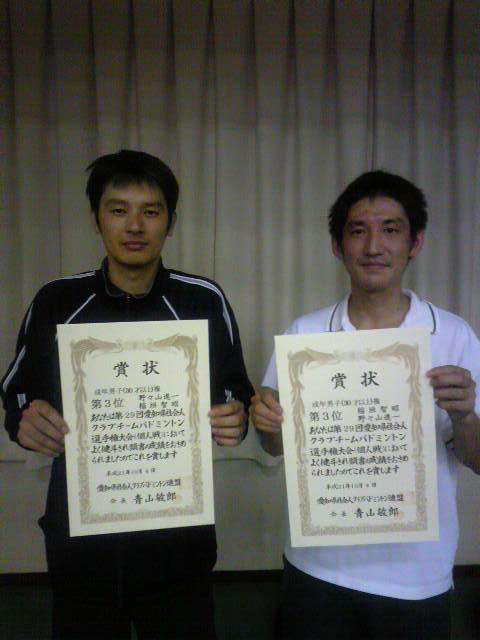 賞状
成年男子(30才以上)複
第3位
野々山進一
稲垣智昭
あなたは第29回愛知県社会人
クラブチームバドミントン
選手権大会(個人戦)において
よく健斗され頭書の成績をおさめ
られましたのでこれを賞します
平成21年10月4日
愛知県社会人クラブバドミントン連盟
会長 青山敏郎
賞状
成年男子(30才以上)複
第3位
稲垣智昭
野々山進一
あなたは第29回愛知県社会人
クラブチームバドミントン
選手権大会(個人戦)において
よく健斗され頭書の成績をおさめ
られましたのでこれを賞します
平成21年10月4日
愛知県社会人クラブバドミントン連盟
会長 青山敏郎